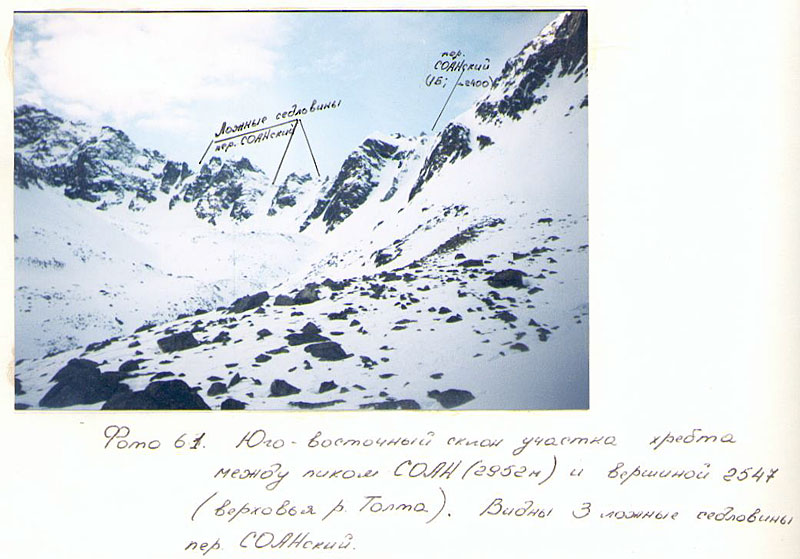 пер.
СОАНский
(1Б; ~2400)
Ложные седловины
пер. СОАНский
Фото 61. Юго-восточный склон участка хребта
между пиком СОАН (2952м) и вершиной 2547
(верховья р. Толта). Видны 3 ложные седловины
пер. СОАНский.